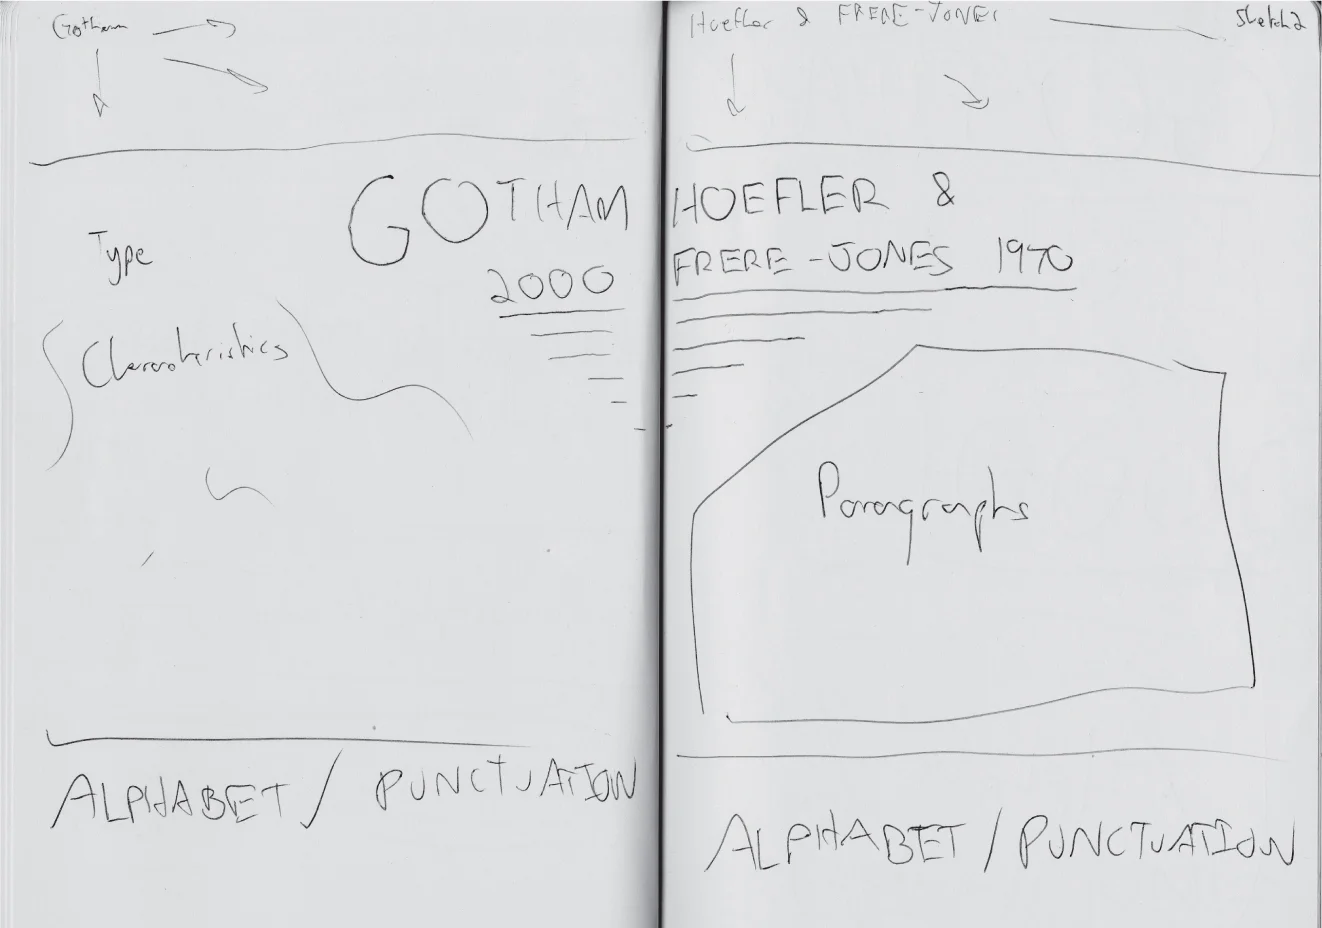 Gotham
GOTHAM
2000
Type
Characteristics
ALPHABET / PUNCTUATION
Hoefler & FRERE-JONES
Sketch 2
HOEFLER &
FRERE-JONES 1970
Paragraphs
ALPHABET / PUNCTUATION